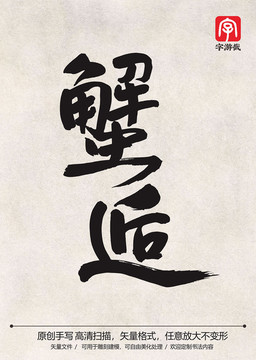 字游戲
蟹逅
原创手写 高清扫描，矢量格式，任意放大不变形
矢量文件 / 可用于雕刻建模，可自由美化处理 / 欢迎定制书法内容